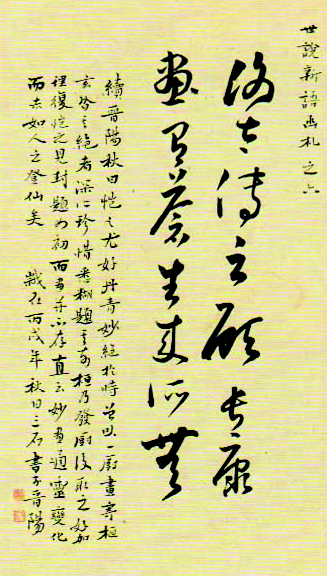 世說新語札之六
謝太傅云顧長康
畫有蒼生來所無
續晉陽秋曰愷之尤好丹青妙絕於時曾以一廚畫寄桓
玄皆其絕者深所珍惜悉糊題其前桓乃發廚後取之好加
理復愷之見封題如初而畫并不存直云妙畫通靈變化
而去如人之登仙矣 歲在丙戌年秋日三石書于晉陽